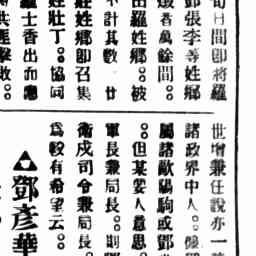 旬日間卽將羅
鄧張李等姓鄉
燬者萬餘間。。
田羅姓鄉。。被
不計其數 廿
姓鄉卽召集
姓壯丁。。協同
士香出而應
共匪擊敗。。
世增兼任說亦一
諸政界中人。。
屬諸歐陽駒或鄧
。。但某要人意思。
軍長兼局長。。則
衞戍司令兼局長。
爲較有希望云。。
▲鄧彥華